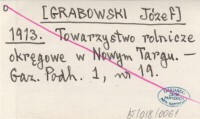 [GRABOWSKI Józef]
1913. Towarzystwo rolnicze
okręgowe w Nowym Targu. —
Gaz. Podh. 1, nr 19.